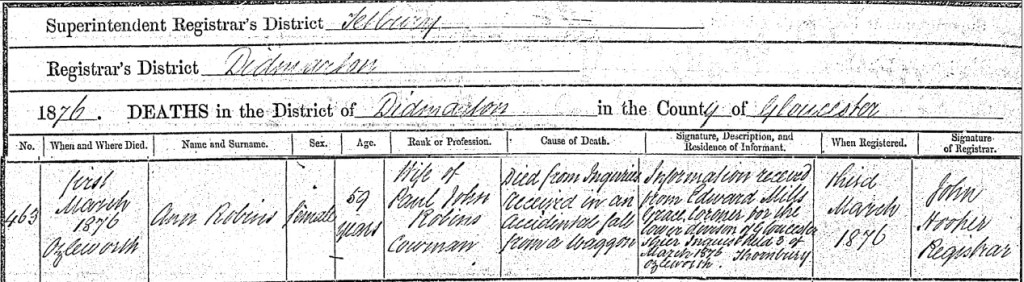 Superintendent Registrar's District Tetbury
Registrar's District Didmarton
1876. DEATHS in the District of Didmarton in the County of Gloucester
No. When and Where Died. Name and Surname. Sex. Age. Rank or Profession. Cause of Death. Signature, Description, and Residence of Informant. When Registered. Signature of Registrar.
463
first
March
1876
Ozleworth
Ann Robins
Female
59
years
Wife of
Paul John
Robins
Cowman
Died from Injuries
received in an
accidental fall
from a waggon
Information received
from Edward Mills
Grace, Coroner for the
lower division of Gloucester
shire Inquest held 3 of
March 1876 Thornbury
Ozleworth.
third
March
1876
John
Hooper
Registrar